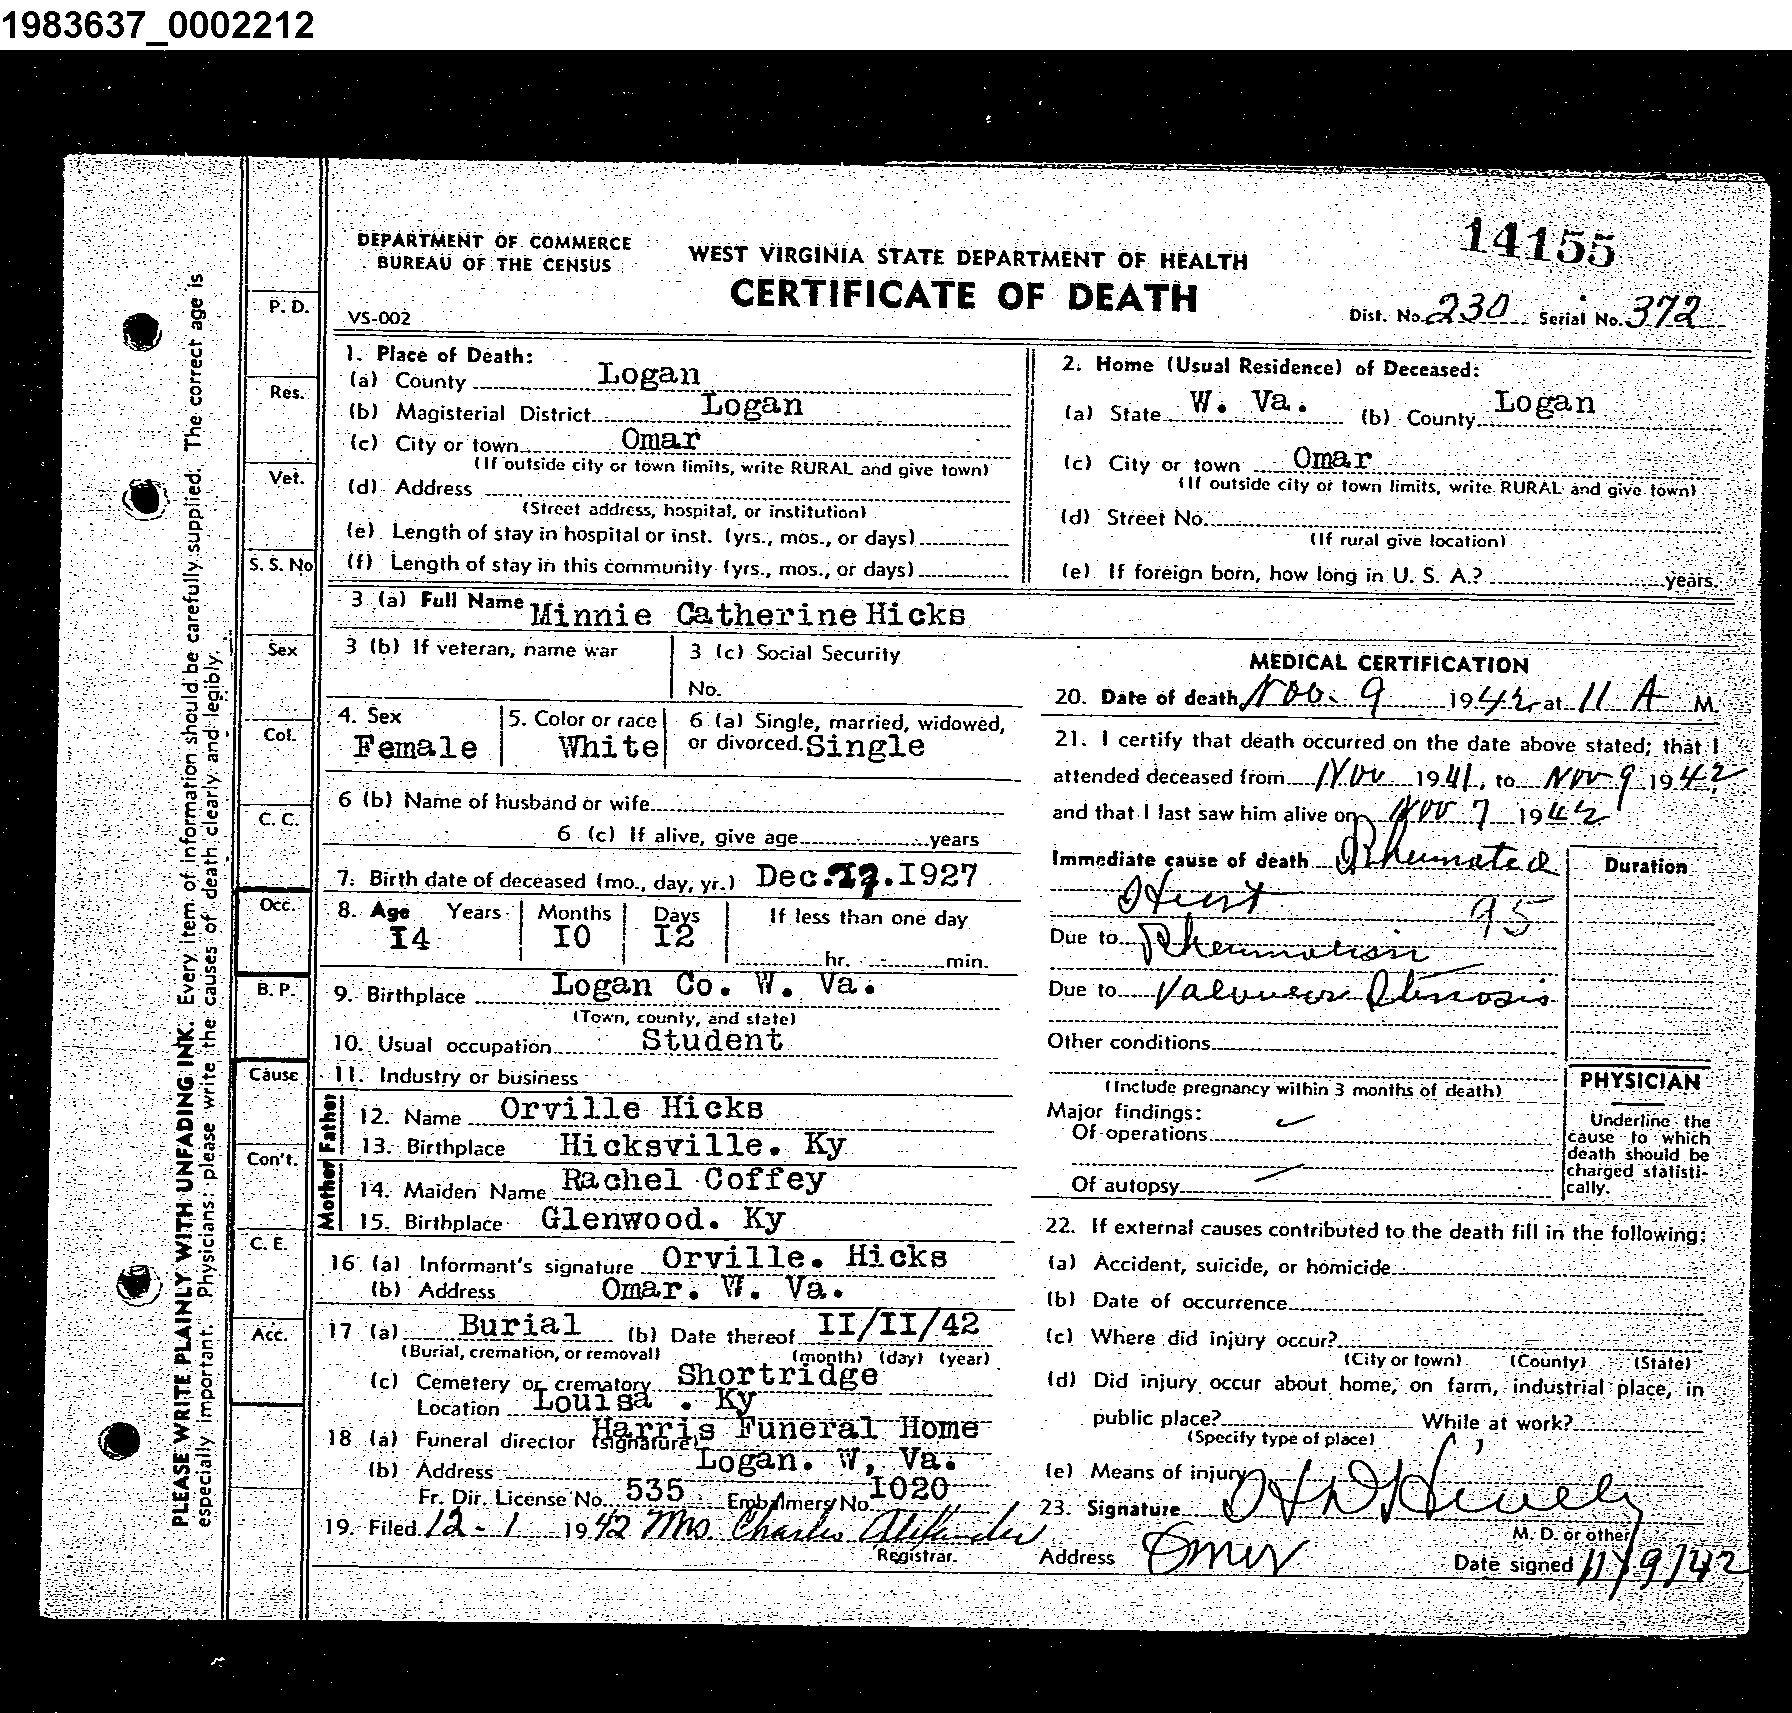 1983637_0002212
14155
DEPARTMENT OF COMMERCE
BUREAU OF THE CENSUS
WEST VIRGINIA STATE DEPARTMENT OF HEALTH
CERTIFICATE OF DEATH
VS-002
Dist. No. 230 Serial No. 372
PLEASE WRITE PLAINLY WITH UNFADING INK. Every item of information should be carefully supplied. The correct age is
especially important. Physicians: please write the causes of death clearly and legibly.
P. D.
Res.
Vet.
S. S. No
Sex
Col.
C. C.
Occ.
B. P.
Cause
Con't.
C. E.
Acc.
1. Place of Death:
(a) County Logan
(b) Magisterial District Logan
(c) City or town Omar
(If outside city or town limits, write RURAL and give town)
(d) Address
(Street address, hospital, or institution)
(e) Length of stay in hospital or inst. (yrs., mos., or days)
(f) Length of stay in this community (yrs., mos., or days)
2. Home (Usual Residence) of Deceased:
(a) State W. Va. (b) County Logan
(c) City or town Omar
(If outside city or town limits, write RURAL and give town)
(d) Street No.
(If rural give location)
(e) If foreign born, how long in U. S. A.? years.
3 (a) Full Name Minnie Catherine Hicks
3 (b) If veteran, name war
3 (c) Social Security
No.
4. Sex
Female
5. Color or race
White
6 (a) Single, married, widowed,
or divorced. Single
6 (b) Name of husband or wife
6 (c) If alive, give age years
7. Birth date of deceased (mo., day, yr.) Dec. .I927
8. Age Years Months Days If less than one day
I4 I0 I2
hr. min.
9. Birthplace Logan Co. W. Va.
(Town, county, and state)
10. Usual occupation Student
11. Industry or business
Father
12. Name Orville Hicks
13. Birthplace Hicksville. Ky
Mother
14. Maiden Name Rachel Coffey
15. Birthplace Glenwood. Ky
16. (a) Informant's signature Orville. Hicks
(b) Address Omar. W. Va.
17 (a) Burial (b) Date thereof II/II/42
(Burial, cremation, or removal) (month) (day) (year)
(c) Cemetery or crematory Shortridge
Location Louisa . Ky
18 (a) Funeral director (signature) Harris Funeral Home
(b) Address Logan. W, Va.
Fr. Dir. License No. 535 Embalmers No. I020
19. Filed 12-1 1942 Mrs. Charles Alexander
Registrar.
MEDICAL CERTIFICATION
20. Date of death Nov. 9 1942 at 11 A M.
21. I certify that death occurred on the date above stated; that I
attended deceased from Nov 1941, to Nov 9 1942
and that I last saw him alive on Nov 7 1942
Immediate cause of death Rheumated
Heart 95
Due to Rheumatism
Due to Valvular Stenosis
Other conditions
(Include pregnancy within 3 months of death)
Major findings:
Of operations
Of autopsy
Duration
PHYSICIAN
Underline the
cause to which
death should be
charged statisti-
cally.
22. If external causes contributed to the death fill in the following:
(a) Accident, suicide, or homicide
(b) Date of occurrence
(c) Where did injury occur?
(City or town) (County) (State)
(d) Did injury occur about home, on farm, industrial place, in
public place? While at work?
(Specify type of place)
(e) Means of injury
23. Signature
M. D. or other
Address Omar Date signed 11/9/42